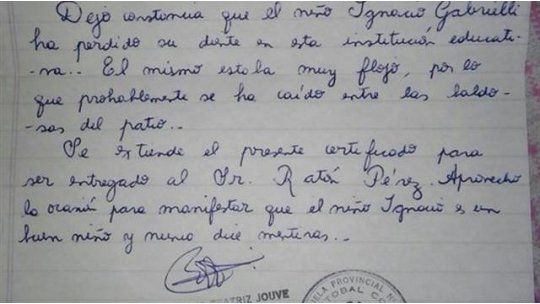 Dejo constancia que el niño Ignacio Gabrielli
ha perdido su diente en esta institución educati-
-va.. El mismo estaba muy flojo, por lo
que probablemente se ha caído entre las baldo-
-sas del patio..
Se extiende el presente certificado para
ser entregado al Sr. Ratón Pérez. Aprovecho
la ocasión para manifestar que el niño Ignacio es un
buen niño y nunca dice mentiras..
BEATRIZ JOUVE
ESCUELA PROVINCIAL N